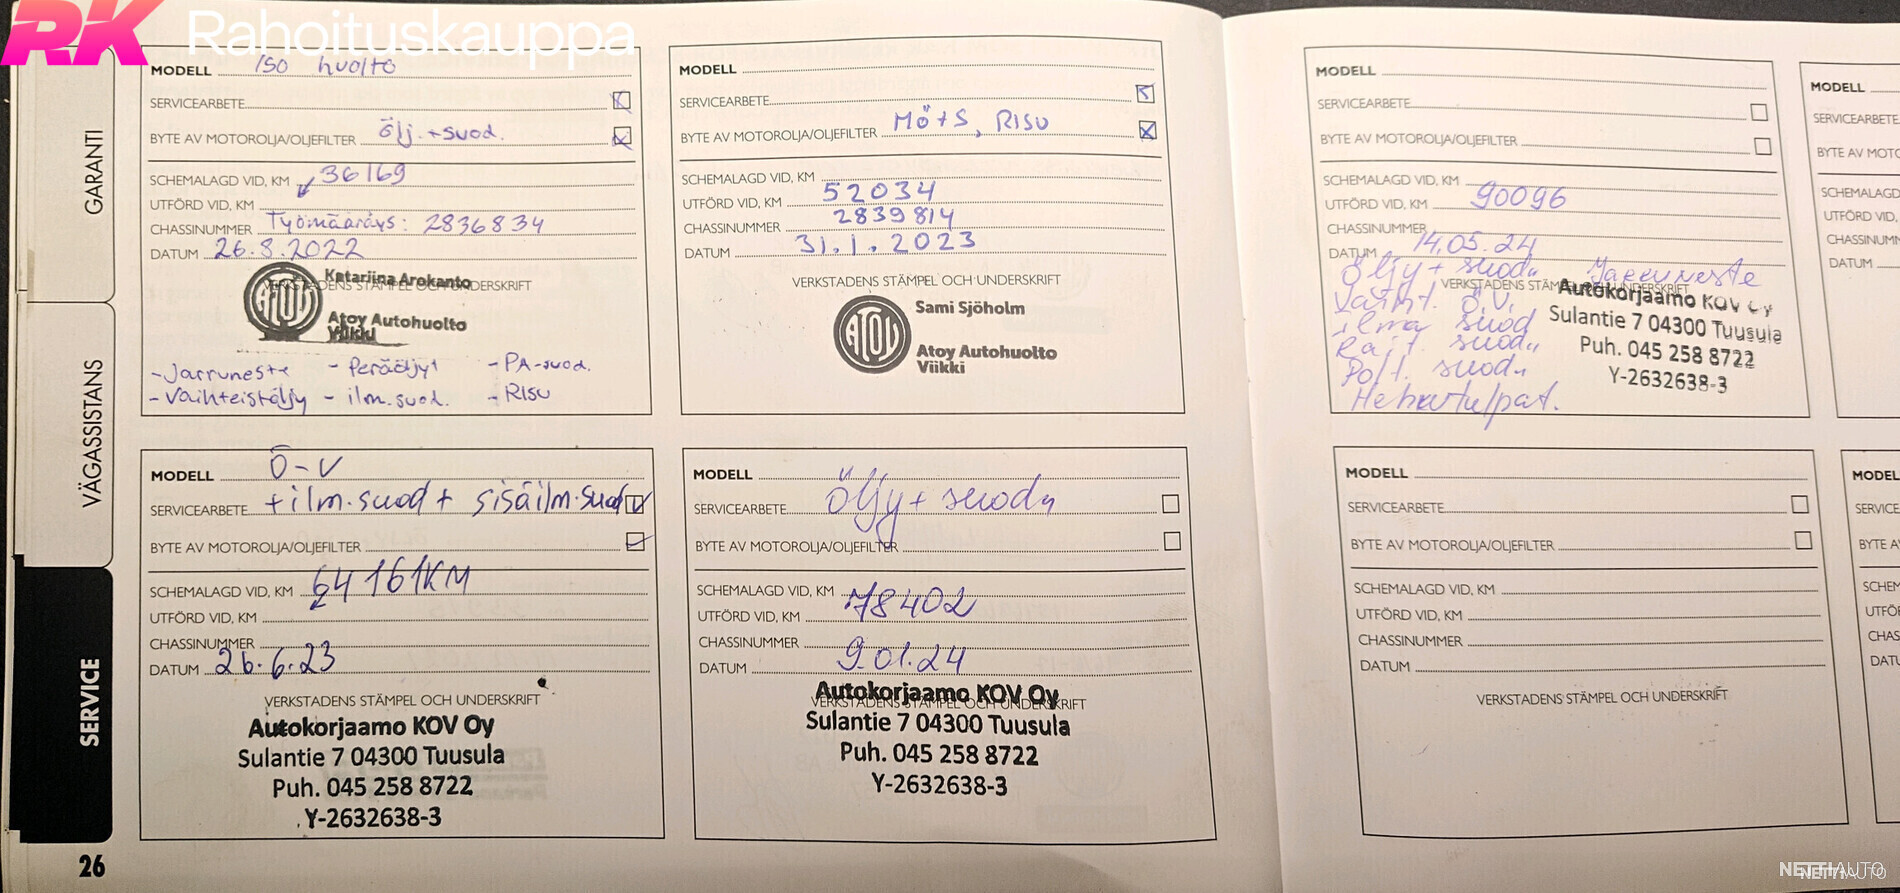 RK Rahoituskauppa
GARANTI
VÄGASSISTANS
SERVICE
26
MODELL Iso huolto
SERVICEARBETE
BYTE AV MOTOROLJA/OLJEFILTER Ölj.+suod.
SCHEMALAGD VID, KM 36169
UTFÖRD VID, KM
CHASSINUMMER Työmääräys: 2836834
DATUM 26.8.2022
VERKSTADENS STÄMPEL OCH UNDERSKRIFT
Katariina Arokanto
ATOY
Atoy Autohuolto
Viikki
- Jarruneste - Peräöljyt - PA-suod.
- Vaihteistöljy - ilm.suod. - RISU
MODELL
SERVICEARBETE
BYTE AV MOTOROLJA/OLJEFILTER MÖ+S, RISU
SCHEMALAGD VID, KM
UTFÖRD VID, KM 52034
CHASSINUMMER 2839814
DATUM 31.1.2023
VERKSTADENS STÄMPEL OCH UNDERSKRIFT
Sami Sjöholm
ATOY
Atoy Autohuolto
Viikki
MODELL Ö-V
SERVICEARBETE +ilm.suod+ sisäilm.suod
BYTE AV MOTOROLJA/OLJEFILTER
SCHEMALAGD VID, KM 64161KM
UTFÖRD VID, KM
CHASSINUMMER
DATUM 26.6.23
VERKSTADENS STÄMPEL OCH UNDERSKRIFT
Autokorjaamo KOV Oy
Sulantie 7 04300 Tuusula
Puh. 045 258 8722
Y-2632638-3
MODELL
SERVICEARBETE Öljy+ suod
BYTE AV MOTOROLJA/OLJEFILTER
SCHEMALAGD VID, KM
UTFÖRD VID, KM 78402
CHASSINUMMER
DATUM 9.01.24
VERKSTADENS STÄMPEL OCH UNDERSKRIFT
Autokorjaamo KOV Oy
Sulantie 7 04300 Tuusula
Puh. 045 258 8722
Y-2632638-3
MODELL
SERVICEARBETE
BYTE AV MOTOROLJA/OLJEFILTER
SCHEMALAGD VID, KM
UTFÖRD VID, KM 90096
CHASSINUMMER
DATUM 14.05.24
Öljy+ suod. Jarruneste
VERKSTADENS STÄMPEL OCH UNDERSKRIFT
Vaiht. Ö.V.
ilma suod
Rait. suod.
Polt. suod.
Autokorjaamo KOV Oy
Sulantie 7 04300 Tuusula
Puh. 045 258 8722
Y-2632638-3
MODELL
SERVICEARBETE
BYTE AV MOTOROLJA/OLJEFILTER
SCHEMALAGD VID, KM
UTFÖRD VID, KM
CHASSINUMMER
DATUM
VERKSTADENS STÄMPEL OCH UNDERSKRIFT
MODELL
SERVICEARBETE
BYTE AV MOTO
SCHEMALAGD
UTFÖRD VID,
CHASSINUMM
DATUM
MODEL
SERVICE
BYTE A
SCHEM
UTFÖ
CHAS
DATU
NETTIAUTO
NETTIAUTO